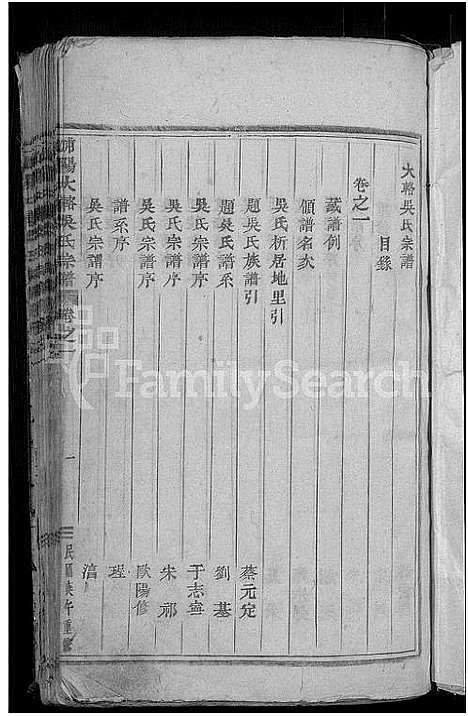 大路吳氏宗譜
目錄
卷之一
藏譜例
領譜名次
吳氏析居地里引
題吳氏族譜引 蔡元定
題吳氏譜系 劉基
吳氏宗譜序 于志寧
吳氏宗譜序 朱祁
吳氏宗譜序 歐陽修
譜系序 理
吳氏宗譜序
陽大路吳氏宗譜 卷之一 一
FamilySearch